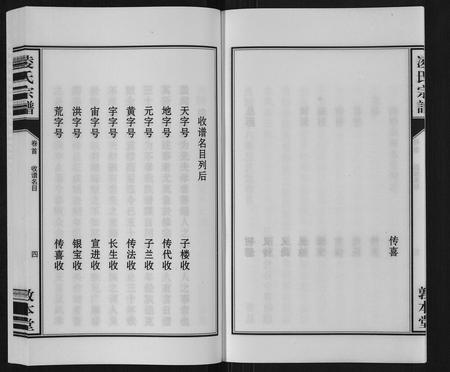 凌氏宗譜
传喜
敦本堂
收谱名目列后
天字号 子楼收
地字号 传代收
元字号 子兰收
黄字号 传法收
宇字号 长生收
宙字号 宣进收
洪字号 银宝收
荒字号 传喜收
凌氏宗譜
卷首 收谱名目
四
敦本堂